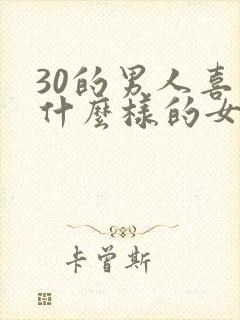 30的男人喜
什麼樣的女
卡曾斯